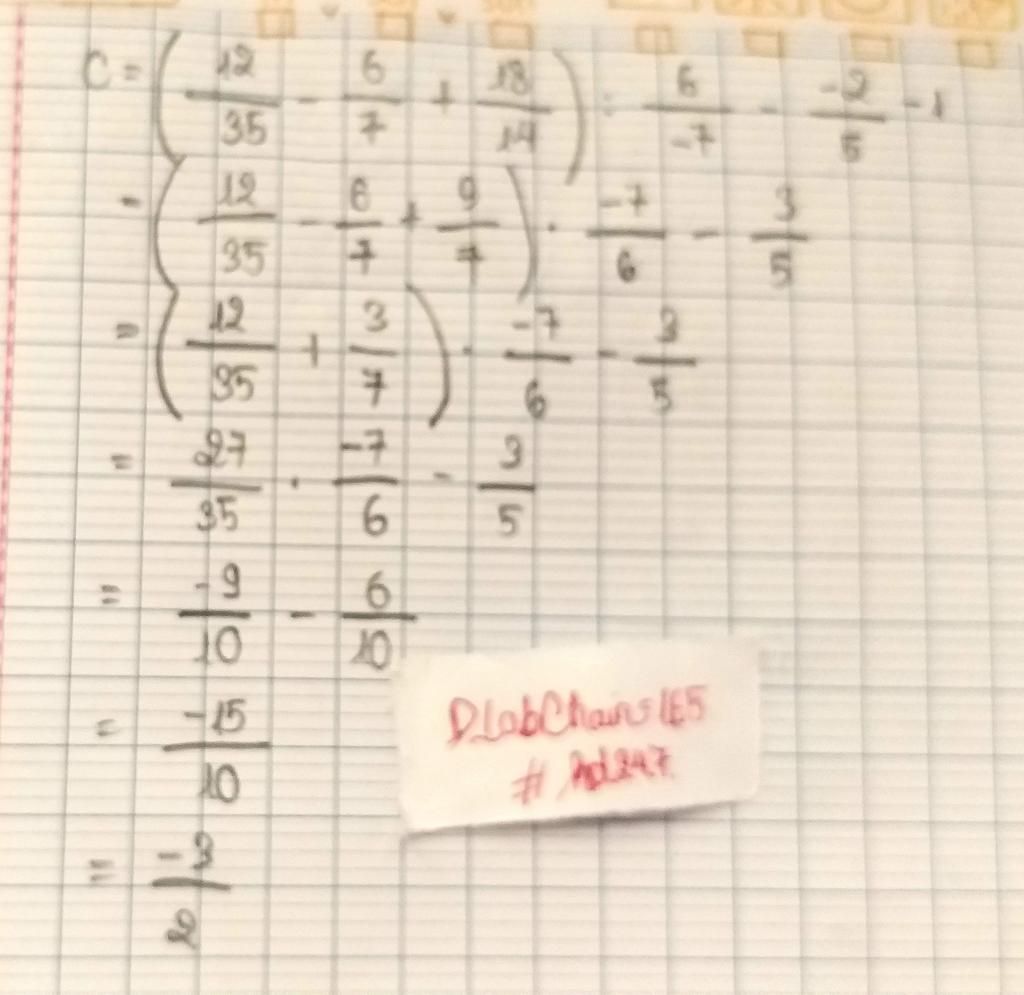 C = (12/35 - 6/7 + 18/14) : 6/-7 - -2/5 - 1
= (12/35 - 6/7 + 9/7) . -7/6 - 3/5
= (12/35 + 3/7) . -7/6 - 3/5
= 27/35 . -7/6 - 3/5
= -9/10 - 6/10
= -15/10
= -3/2
DLabChains1E5
# hd247